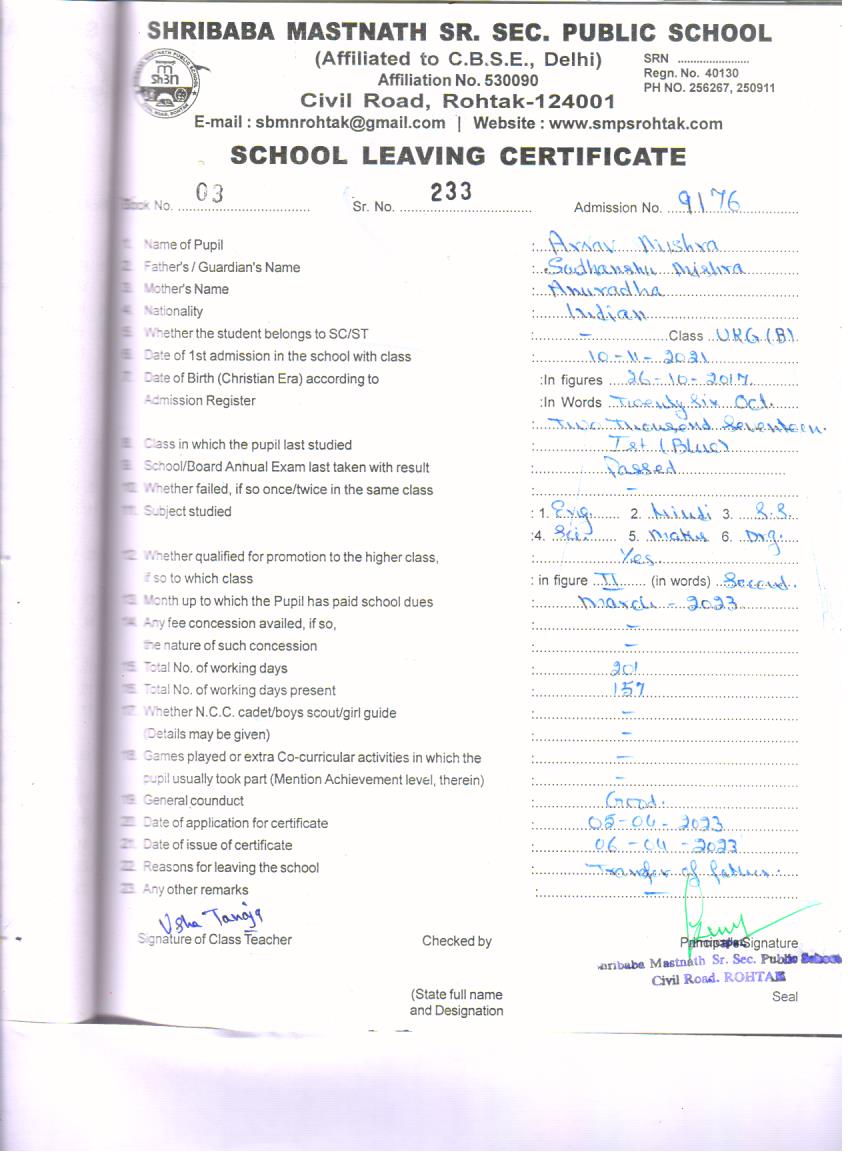 SHRIBABA MASTNATH SR. SEC. PUBLIC SCHOOL
(Affiliated to C.B.S.E., Delhi)
Affiliation No. 530090
Civil Road, Rohtak-124001
SRN ........................
Regn. No. 40130
PH NO. 256267, 250911
E-mail : sbmnrohtak@gmail.com | Website : www.smpsrohtak.com
SCHOOL LEAVING CERTIFICATE
Book No. 03 Sr. No. 233 Admission No. 9176
1. Name of Pupil : Arnav Mishra
2. Father's / Guardian's Name : Sudhanshu Mishra
3. Mother's Name : Anuradha
4. Nationality : Indian
5. Whether the student belongs to SC/ST : – Class UKG (B)
6. Date of 1st admission in the school with class : 10-11-2021
7. Date of Birth (Christian Era) according to :In figures 26-10-2017
Admission Register :In Words Twenty Six Oct.
: Two Thousand Seventeen.
8. Class in which the pupil last studied : Ist (Blue)
9. School/Board Annual Exam last taken with result : Passed
10. Whether failed, if so once/twice in the same class : –
11. Subject studied : 1. Eng. 2. Hindi 3. S.S.
:4. Sci. 5. Maths 6. Drg.
12. Whether qualified for promotion to the higher class, : Yes
if so to which class : in figure II (in words) Second.
13. Month up to which the Pupil has paid school dues : March - 2023
14. Any fee concession availed, if so, : –
the nature of such concession : –
15. Total No. of working days : 201
16. Total No. of working days present : 157
17. Whether N.C.C. cadet/boys scout/girl guide : –
(Details may be given) : –
18. Games played or extra Co-curricular activities in which the : –
pupil usually took part (Mention Achievement level, therein) : –
19. General counduct : Good.
20. Date of application for certificate : 05-04-2023
21. Date of issue of certificate : 06-04-2023
22. Reasons for leaving the school : Transfer of father.
23. Any other remarks : –
Usha Taneja
Signature of Class Teacher Checked by Principal's Signature
Shribaba Mastnath Sr. Sec. Public School
Civil Road. ROHTAK
(State full name Seal
and Designation